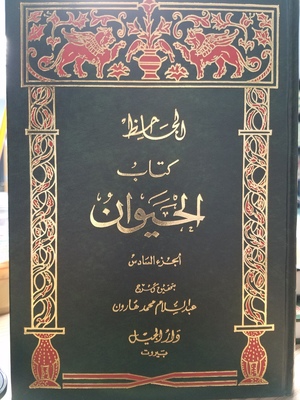 الجاحظ
كتاب
الحيوان
الجزء السادس
بتحقيق وشرح
عبد السلام محمد هارون
دار الجيل
بيروت